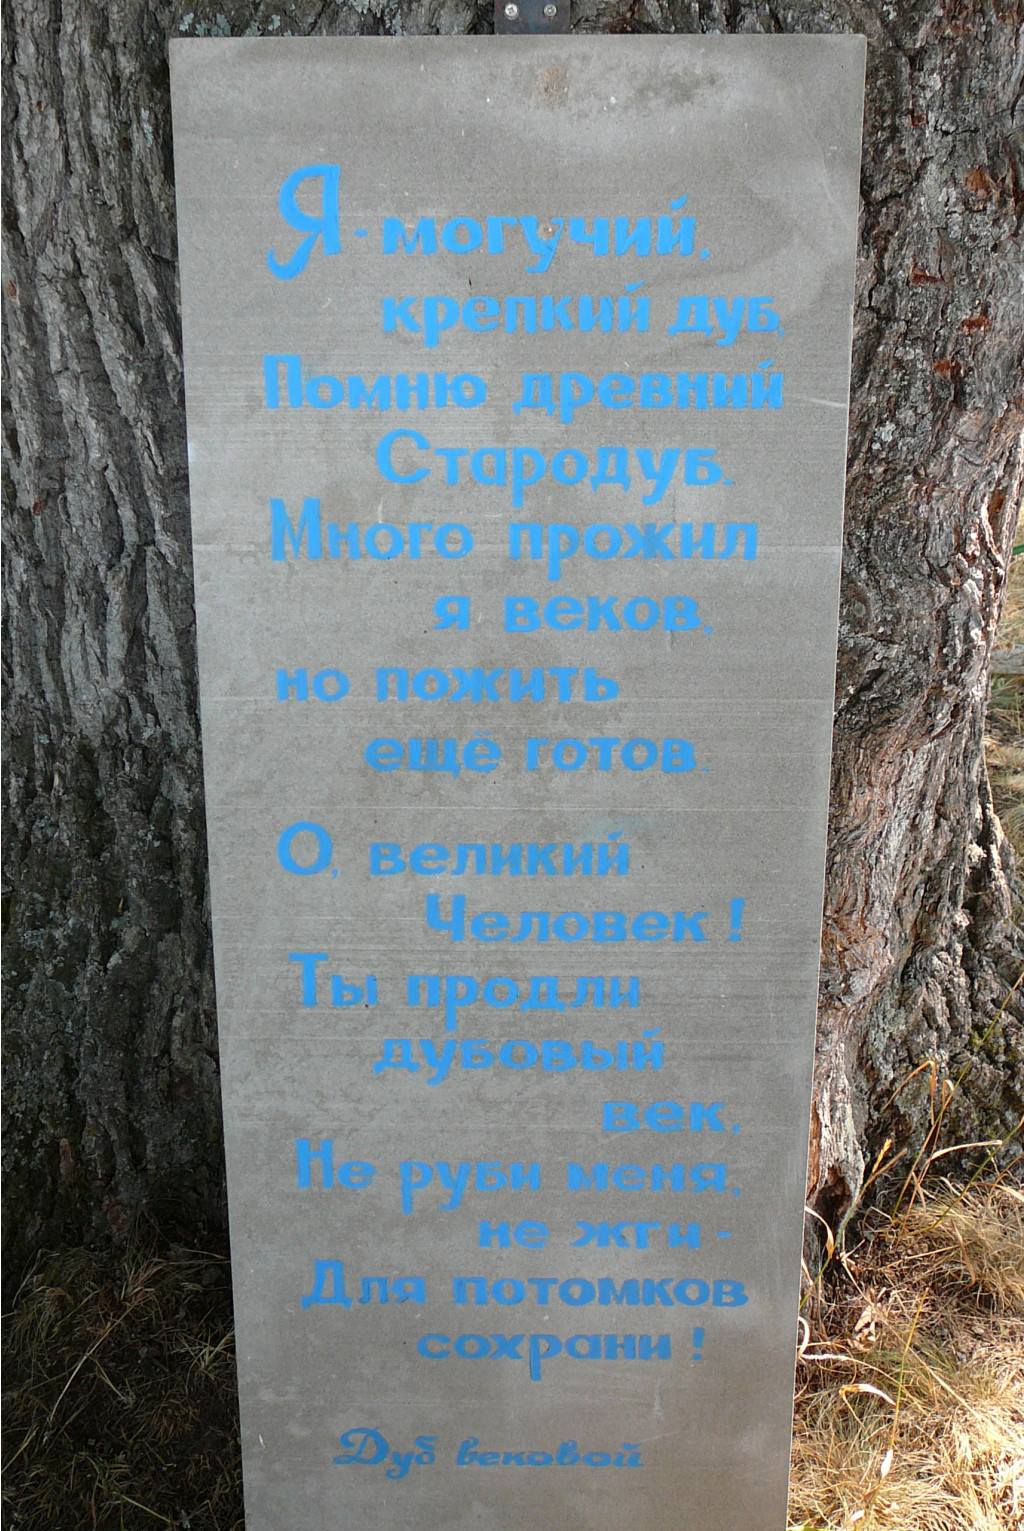 Я - могучий,
крепкий дуб,
Помню древний
Стародуб.
Много прожил
я веков,
но пожить
ещё готов.
О, великий
Человек!
Ты продли
дубовый
век,
Не руби меня,
не жги -
Для потомков
сохрани!
Дуб вековой